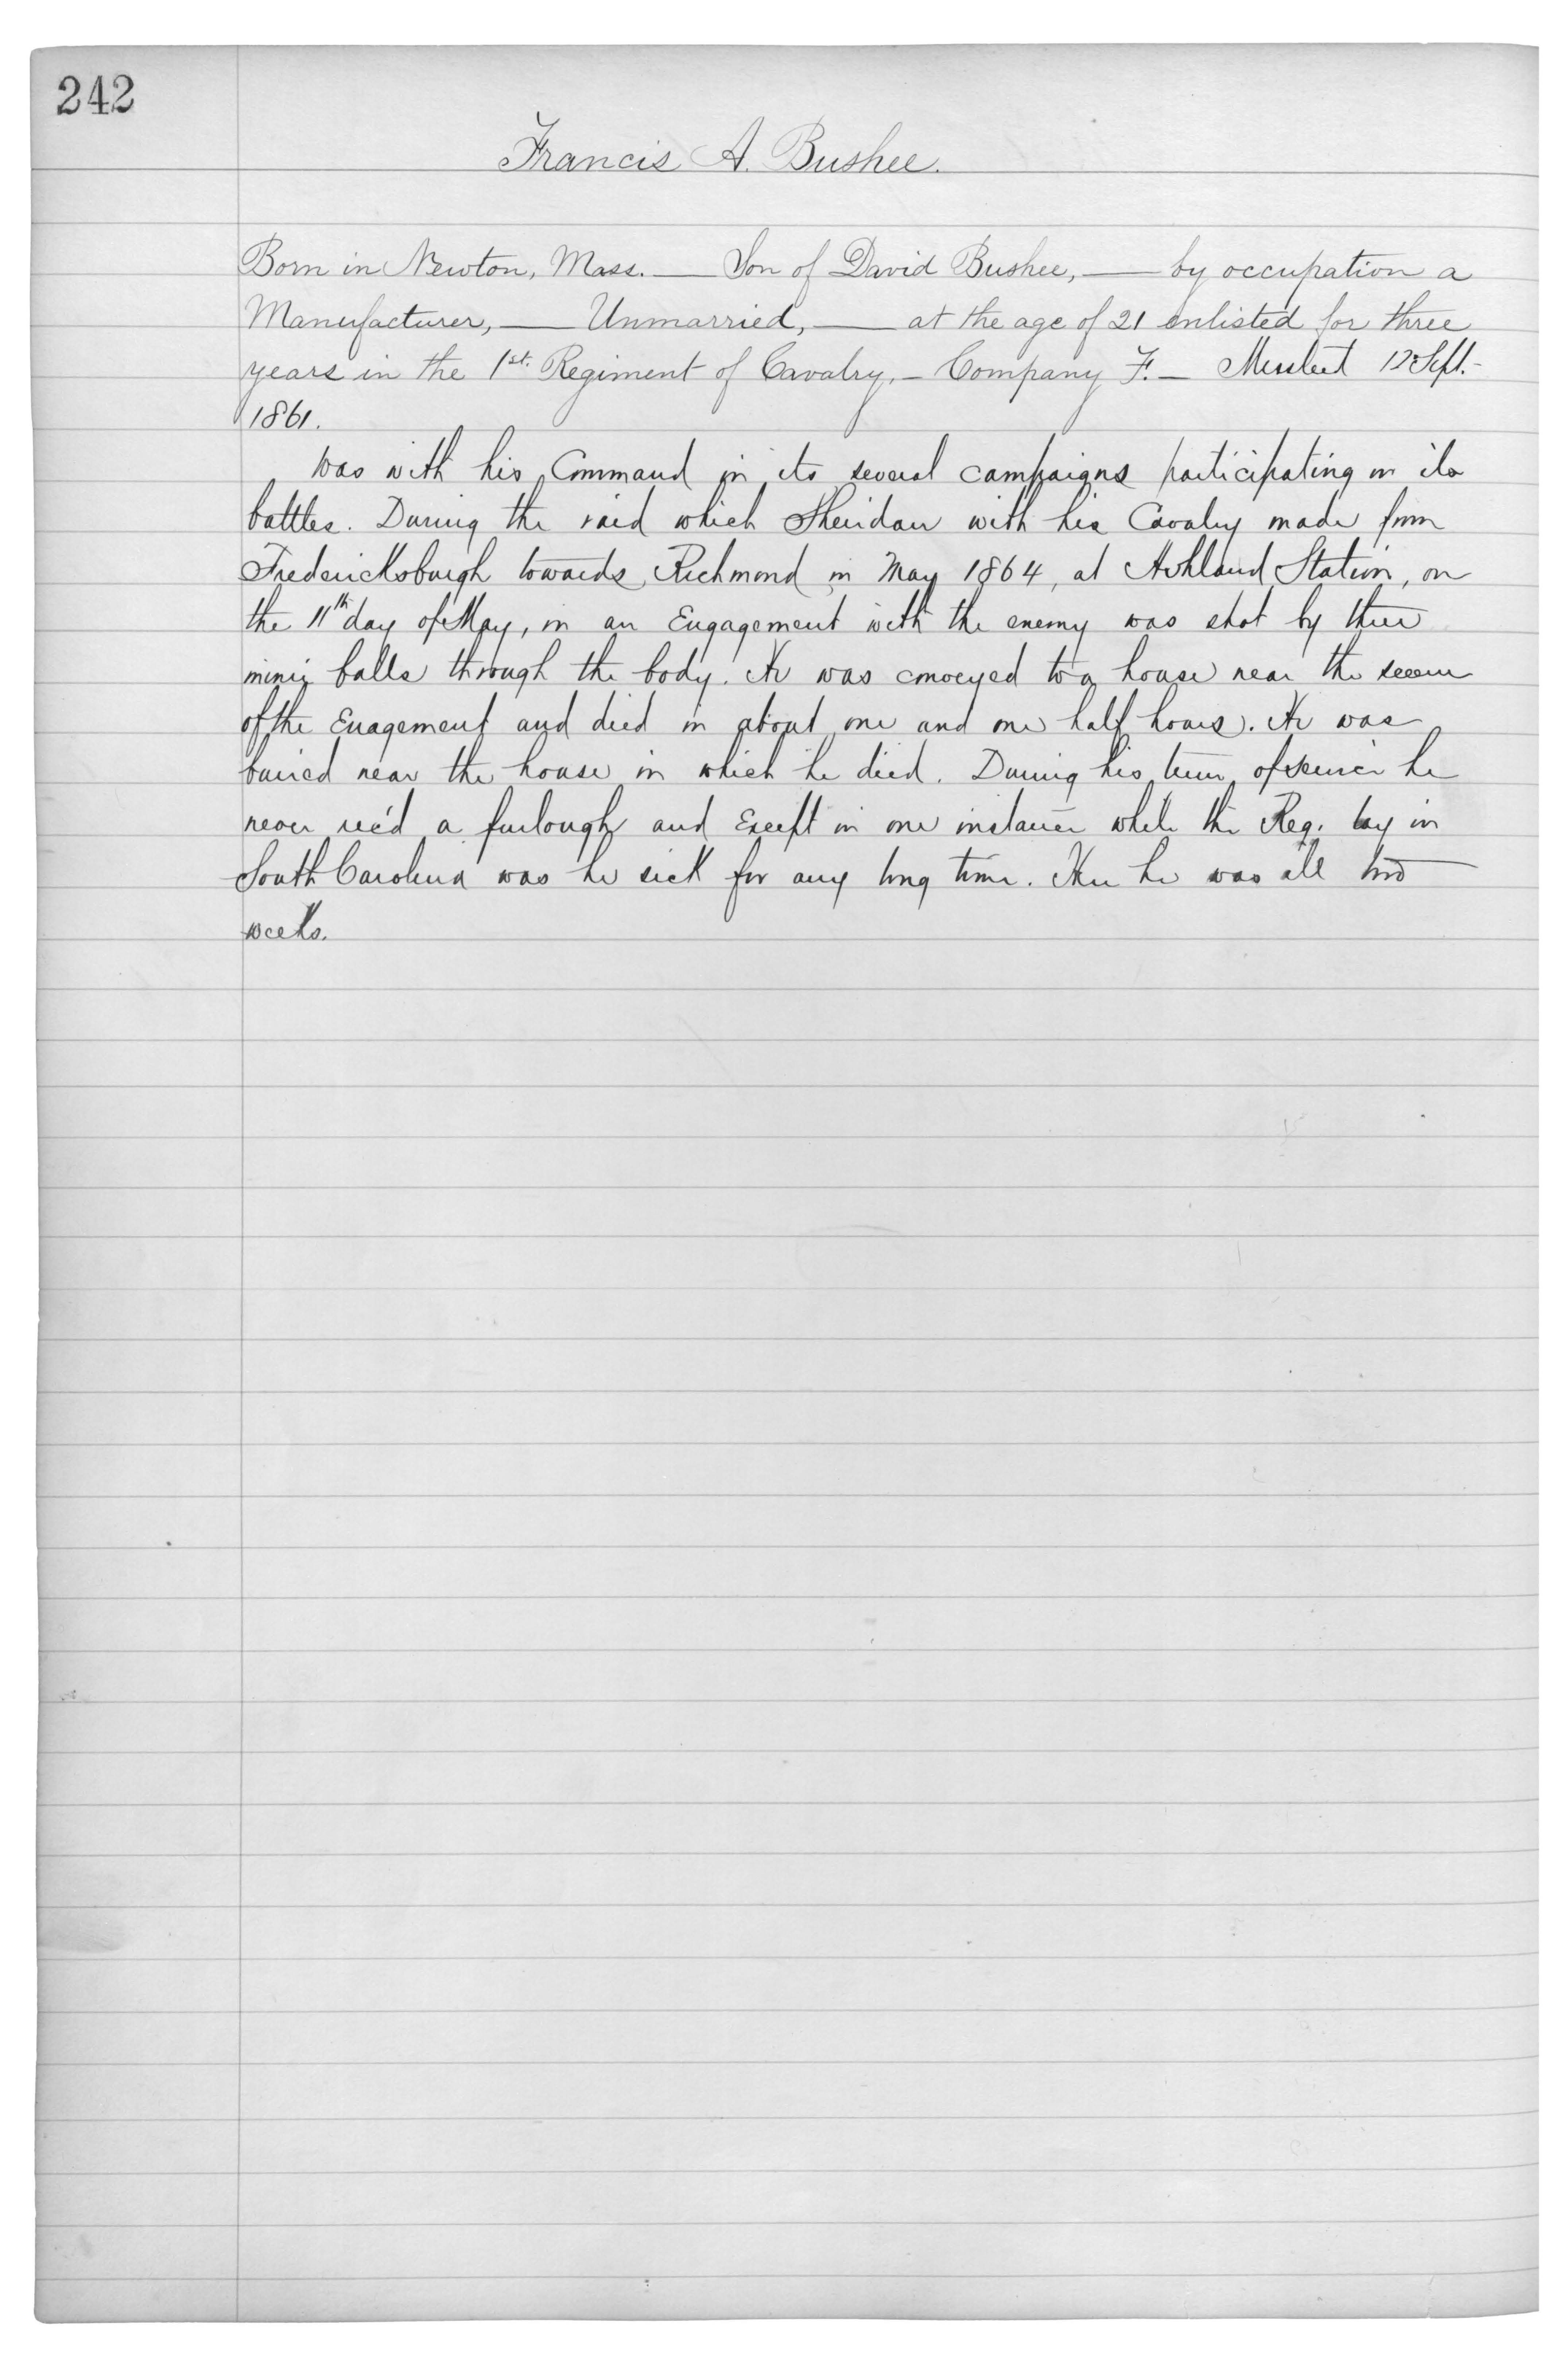 242
Francis A. Bushee.
Born in Newton, Mass. — Son of David Bushee, — by occupation a
Manufacturer, — Unmarried, — at the age of 21 enlisted for three
years in the 1st. Regiment of Cavalry, — Company F. — 12 Sept. -
1861.
Was with his Command in its several campaigns participating in its
battles. During the raid which Sheridan with his Cavalry made from
Fredericksburgh towards Richmond in May 1864, at Ashland Station, on
the 11th day of May, in an Engagement with the enemy was shot by three
minie balls through the body. He was conveyed to a house near the scene
of the Enagement and died in about one and one half hours. He was
buried near the house in which he died. During his term of service he
never rec'd a furlough and Except in one instance while the Reg. lay in
South Carolina was he sick for any long time. he was ill two
weeks.